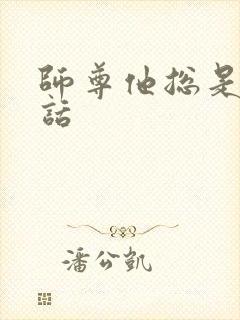 師尊他總是
話
潘公凱